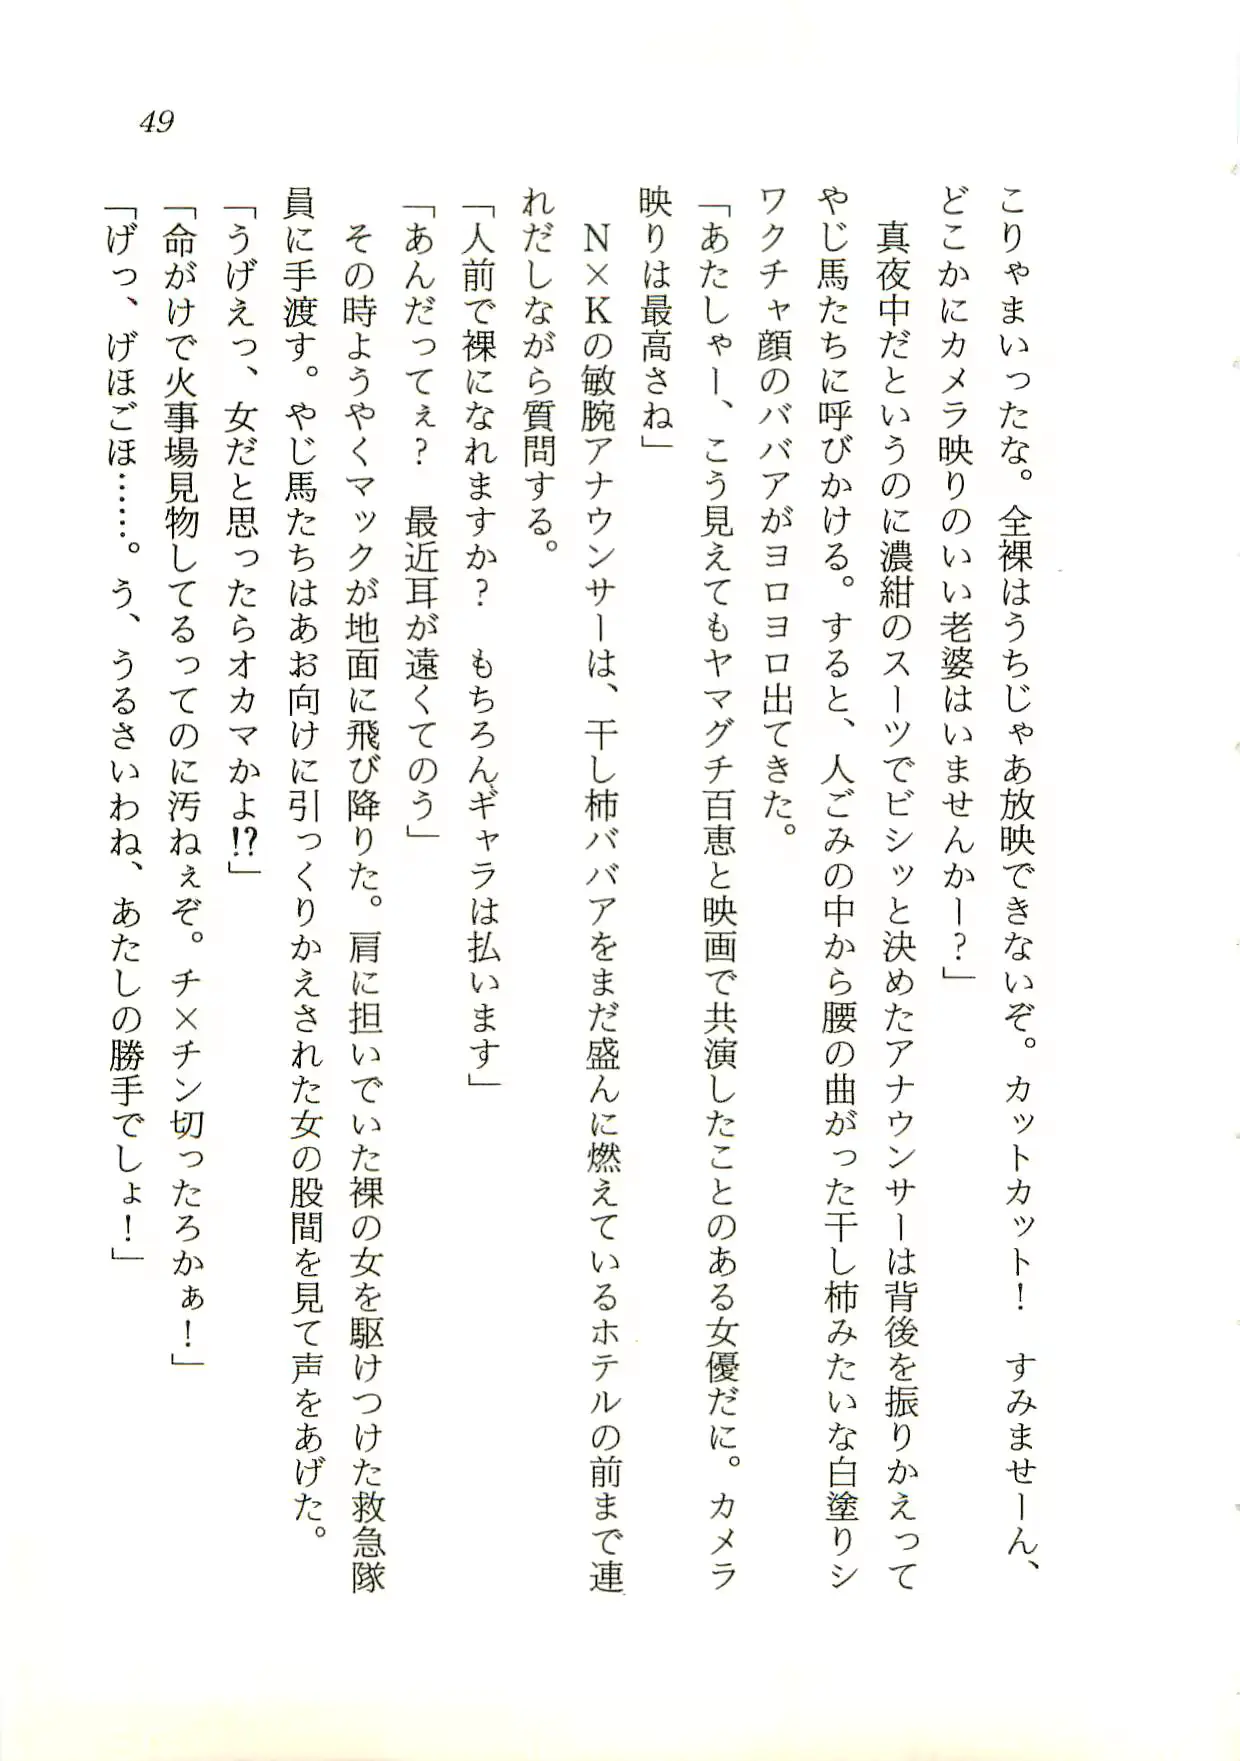 49
こりゃまいったな。全裸はうちじゃあ放映できないぞ。カットカット！　すみませーん、
どこかにカメラ映りのいい老婆はいませんかー？」
　真夜中だというのに濃紺のスーツでビシッと決めたアナウンサーは背後を振りかえって
やじ馬たちに呼びかける。すると、人ごみの中から腰の曲がった干し柿みたいな白塗りシ
ワクチャ顔のババアがヨロヨロ出てきた。
「あたしゃー、こう見えてもヤマグチ百恵と映画で共演したことのある女優だに。カメラ
映りは最高さね」
　N×Kの敏腕アナウンサーは、干し柿ババアをまだ盛んに燃えているホテルの前まで連
れだしながら質問する。
「人前で裸になれますか？　もちろんギャラは払います」
「あんだってぇ？　最近耳が遠くてのう」
　その時ようやくマックが地面に飛び降りた。肩に担いでいた裸の女を駆けつけた救急隊
員に手渡す。やじ馬たちはあお向けに引っくりかえされた女の股間を見て声をあげた。
「うげえっ、女だと思ったらオカマかよ!?」
「命がけで火事場見物してるってのに汚ねぇぞ。チ×チン切ったろかぁ！」
「げっ、げほごほ……。う、うるさいわね、あたしの勝手でしょ！」